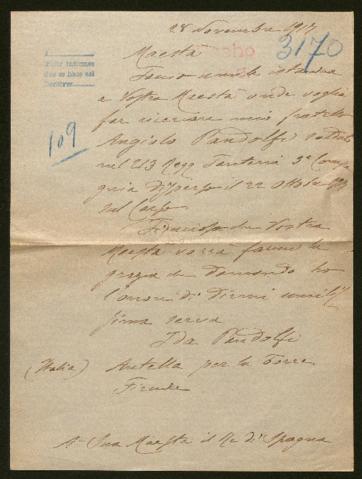 28 Novembre 1917
3170
109
Maestà
Faccio umile istanza
a Vostra Maestà onde voglia
far ricercare mio fratello
Angiolo Pandolfi
nel 213 Regg Fanteria 5ª Compa
gnia disperso il 22 Ottobre
sul Carso
Fiduciosa che Vostra
Maestà vorrà farmi la
grazia che domando ho
l'onore di dirmi umilis
sima serva
Ida Pandolfi
(Italia) Antella per la Torre
Firenze
A Sua Maestà il Re di Spagna